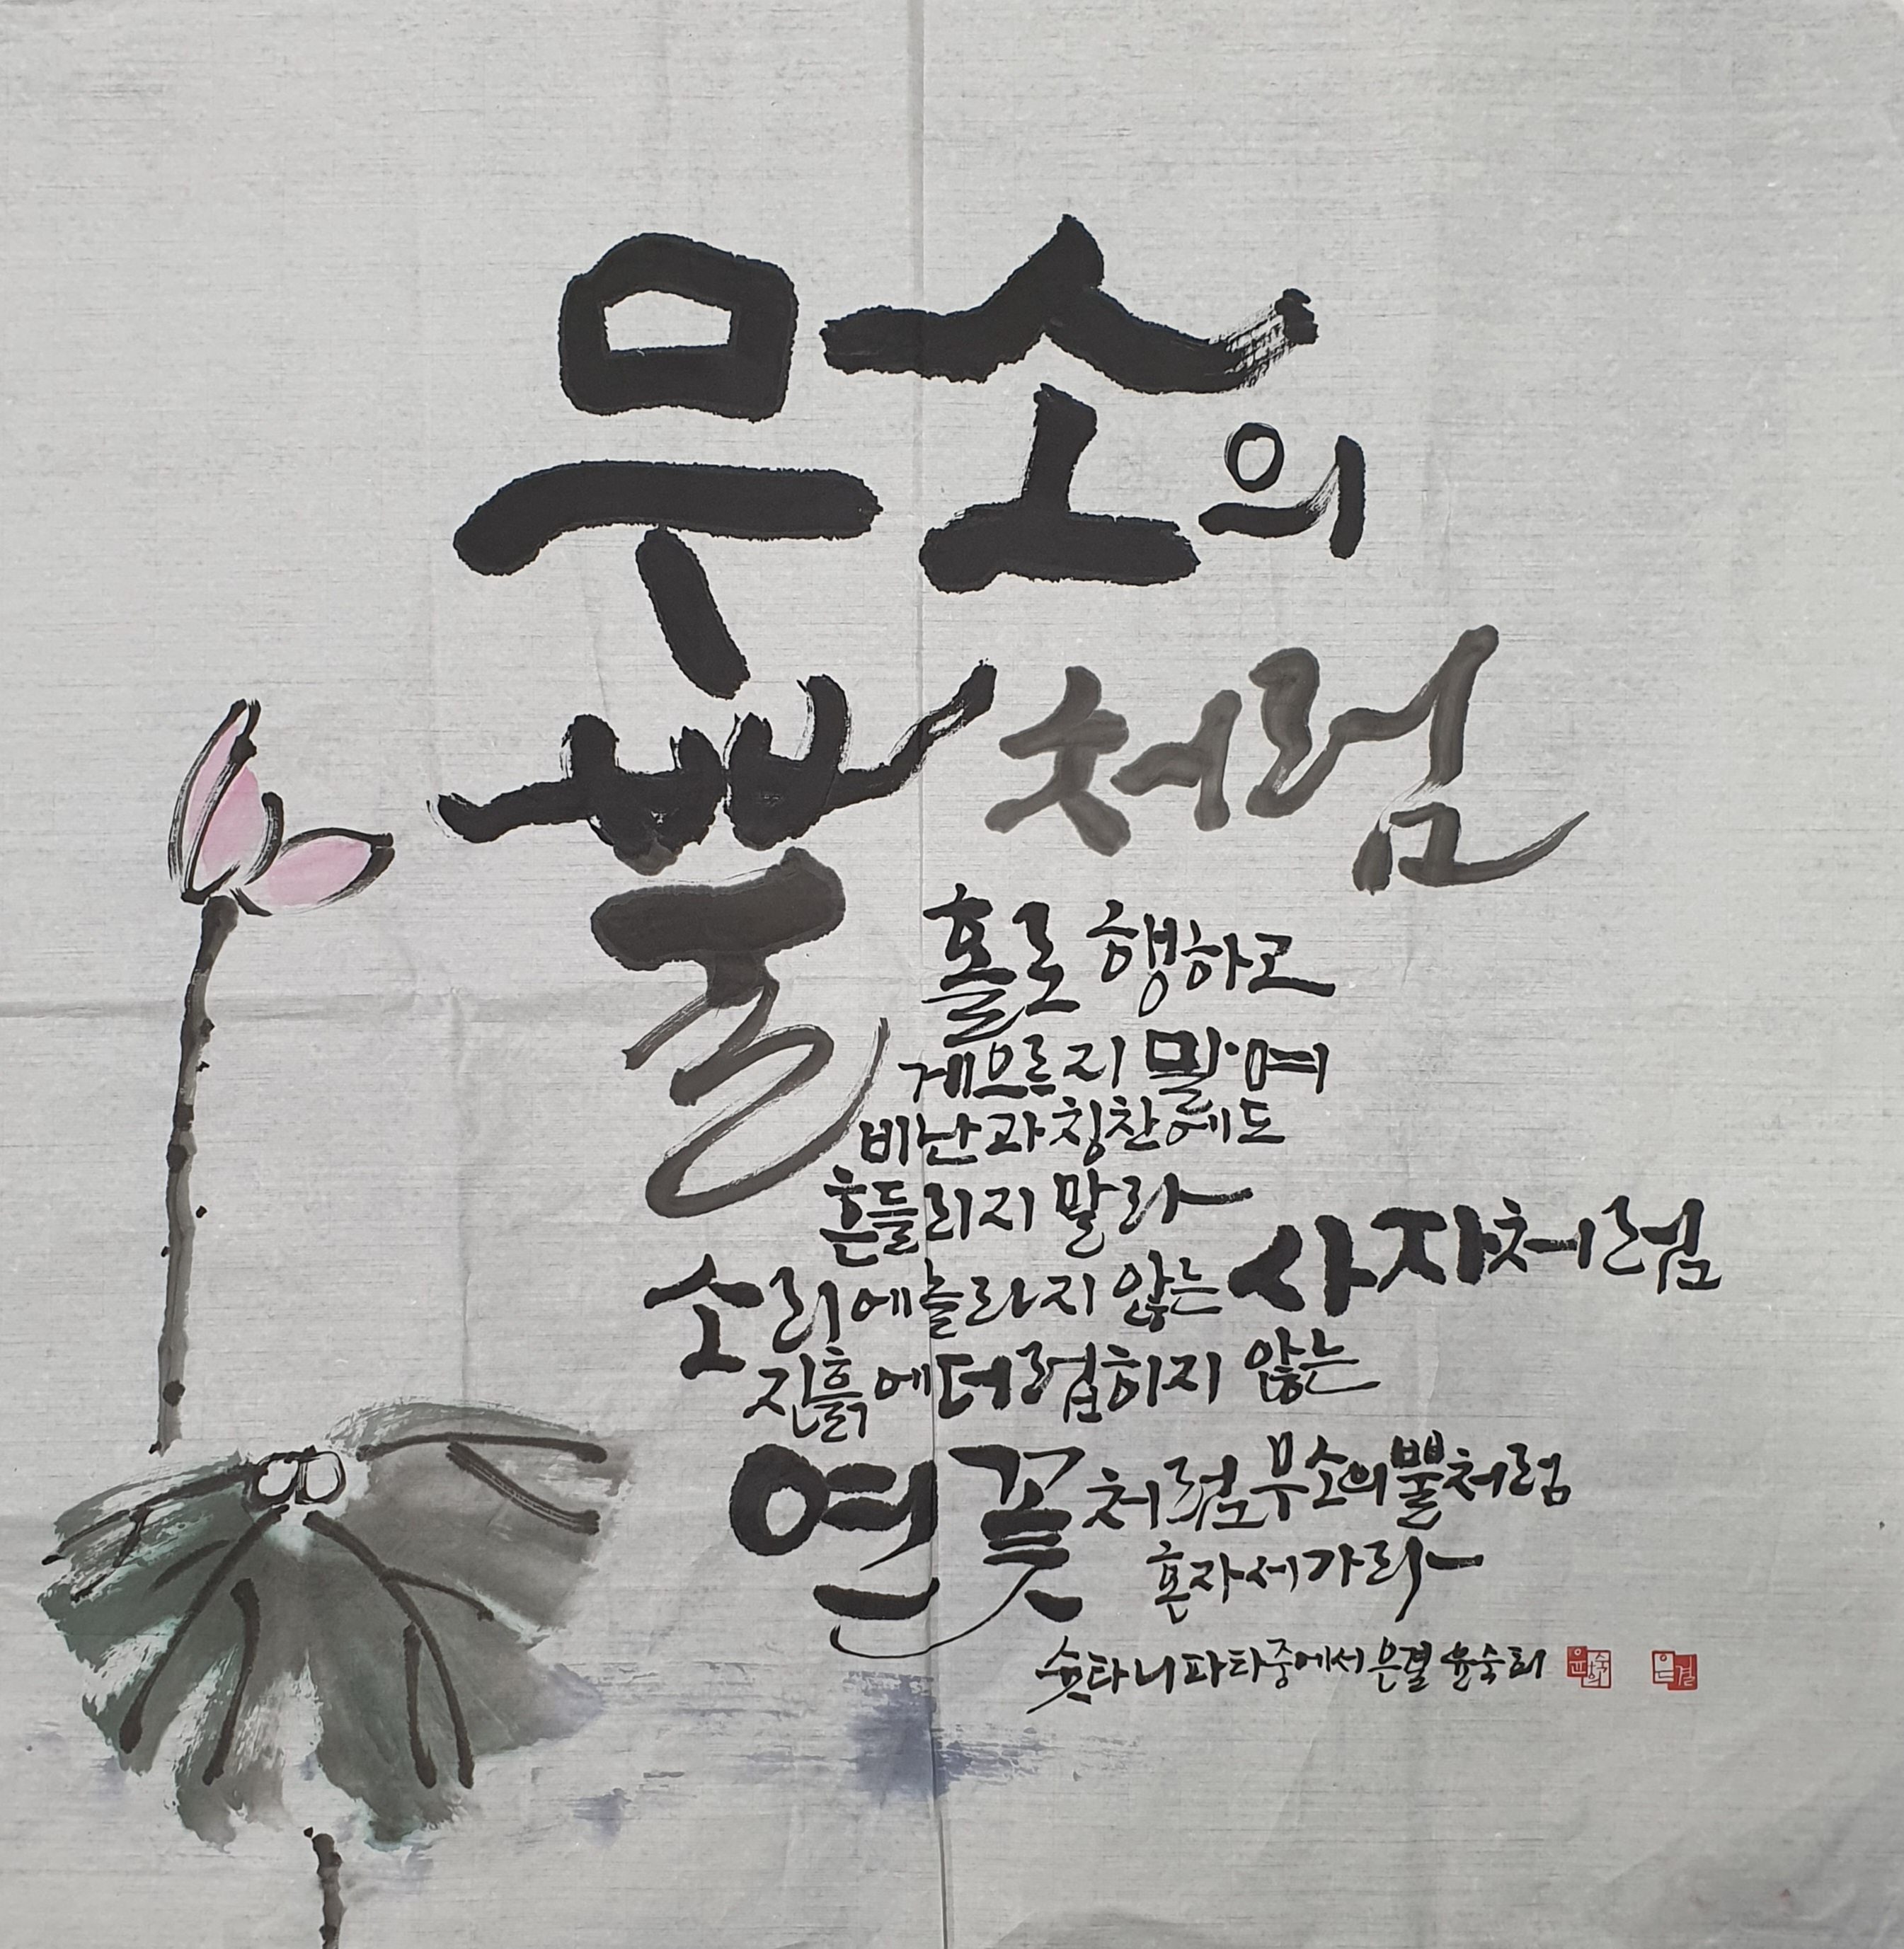 무소의
뿔처럼
홀로 행하고
게으르지 말며
비난과 칭찬에도
흔들리지 말라
소리에 놀라지 않는 사자처럼
진흙에 더럽히지 않는
연꽃처럼 무소의 뿔처럼
혼자서 가라
숫타니파타 중에서 은결 윤숙희
윤숙희
은결